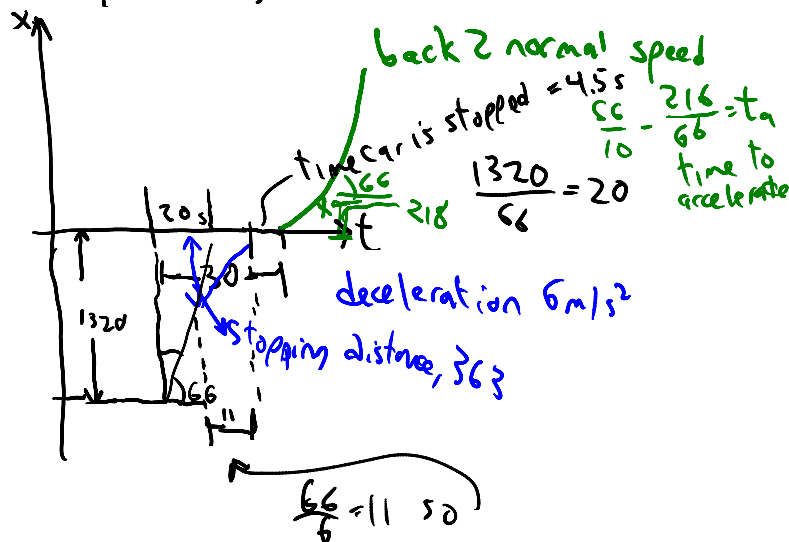 x
back 2 normal speed
time car is stopped = 4.5s
66/10 - 216/66 = ta
time to
accelerate
1320/66 = 20
20s
66
218
t
30
1320
deceleration 6m/s²
stopping distance, 363
66
11
66/6 = 11 so